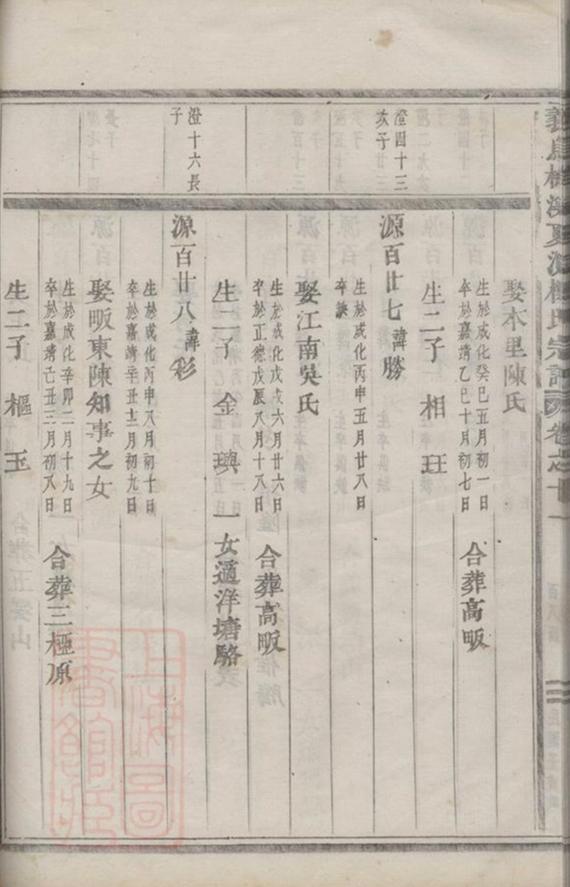 義烏
氏宗譜
娶木里陳氏
生於成化癸巳五月初一日
卒於嘉靖乙巳十月初七日
合葬高畈
生二子 相 玨
澄四十三
次子
源百廿七 諱勝
生於成化丙申五月廿八日
卒缺
娶江南吳氏
生於成化戊戌六月廿六日
卒於正德戊辰八月十八日
合葬高畈
生二子 金 璵 一女適洋塘駱
澄十六長
子
源百廿八 諱彩
生於成化丙申八月初十日
卒於嘉靖辛丑十二月初九日
娶畈東陳知事之女
生於成化辛卯二月十九日
卒於嘉靖己丑三月初八日
合葬三極原
生二子 樞 玉
上海圖書館藏